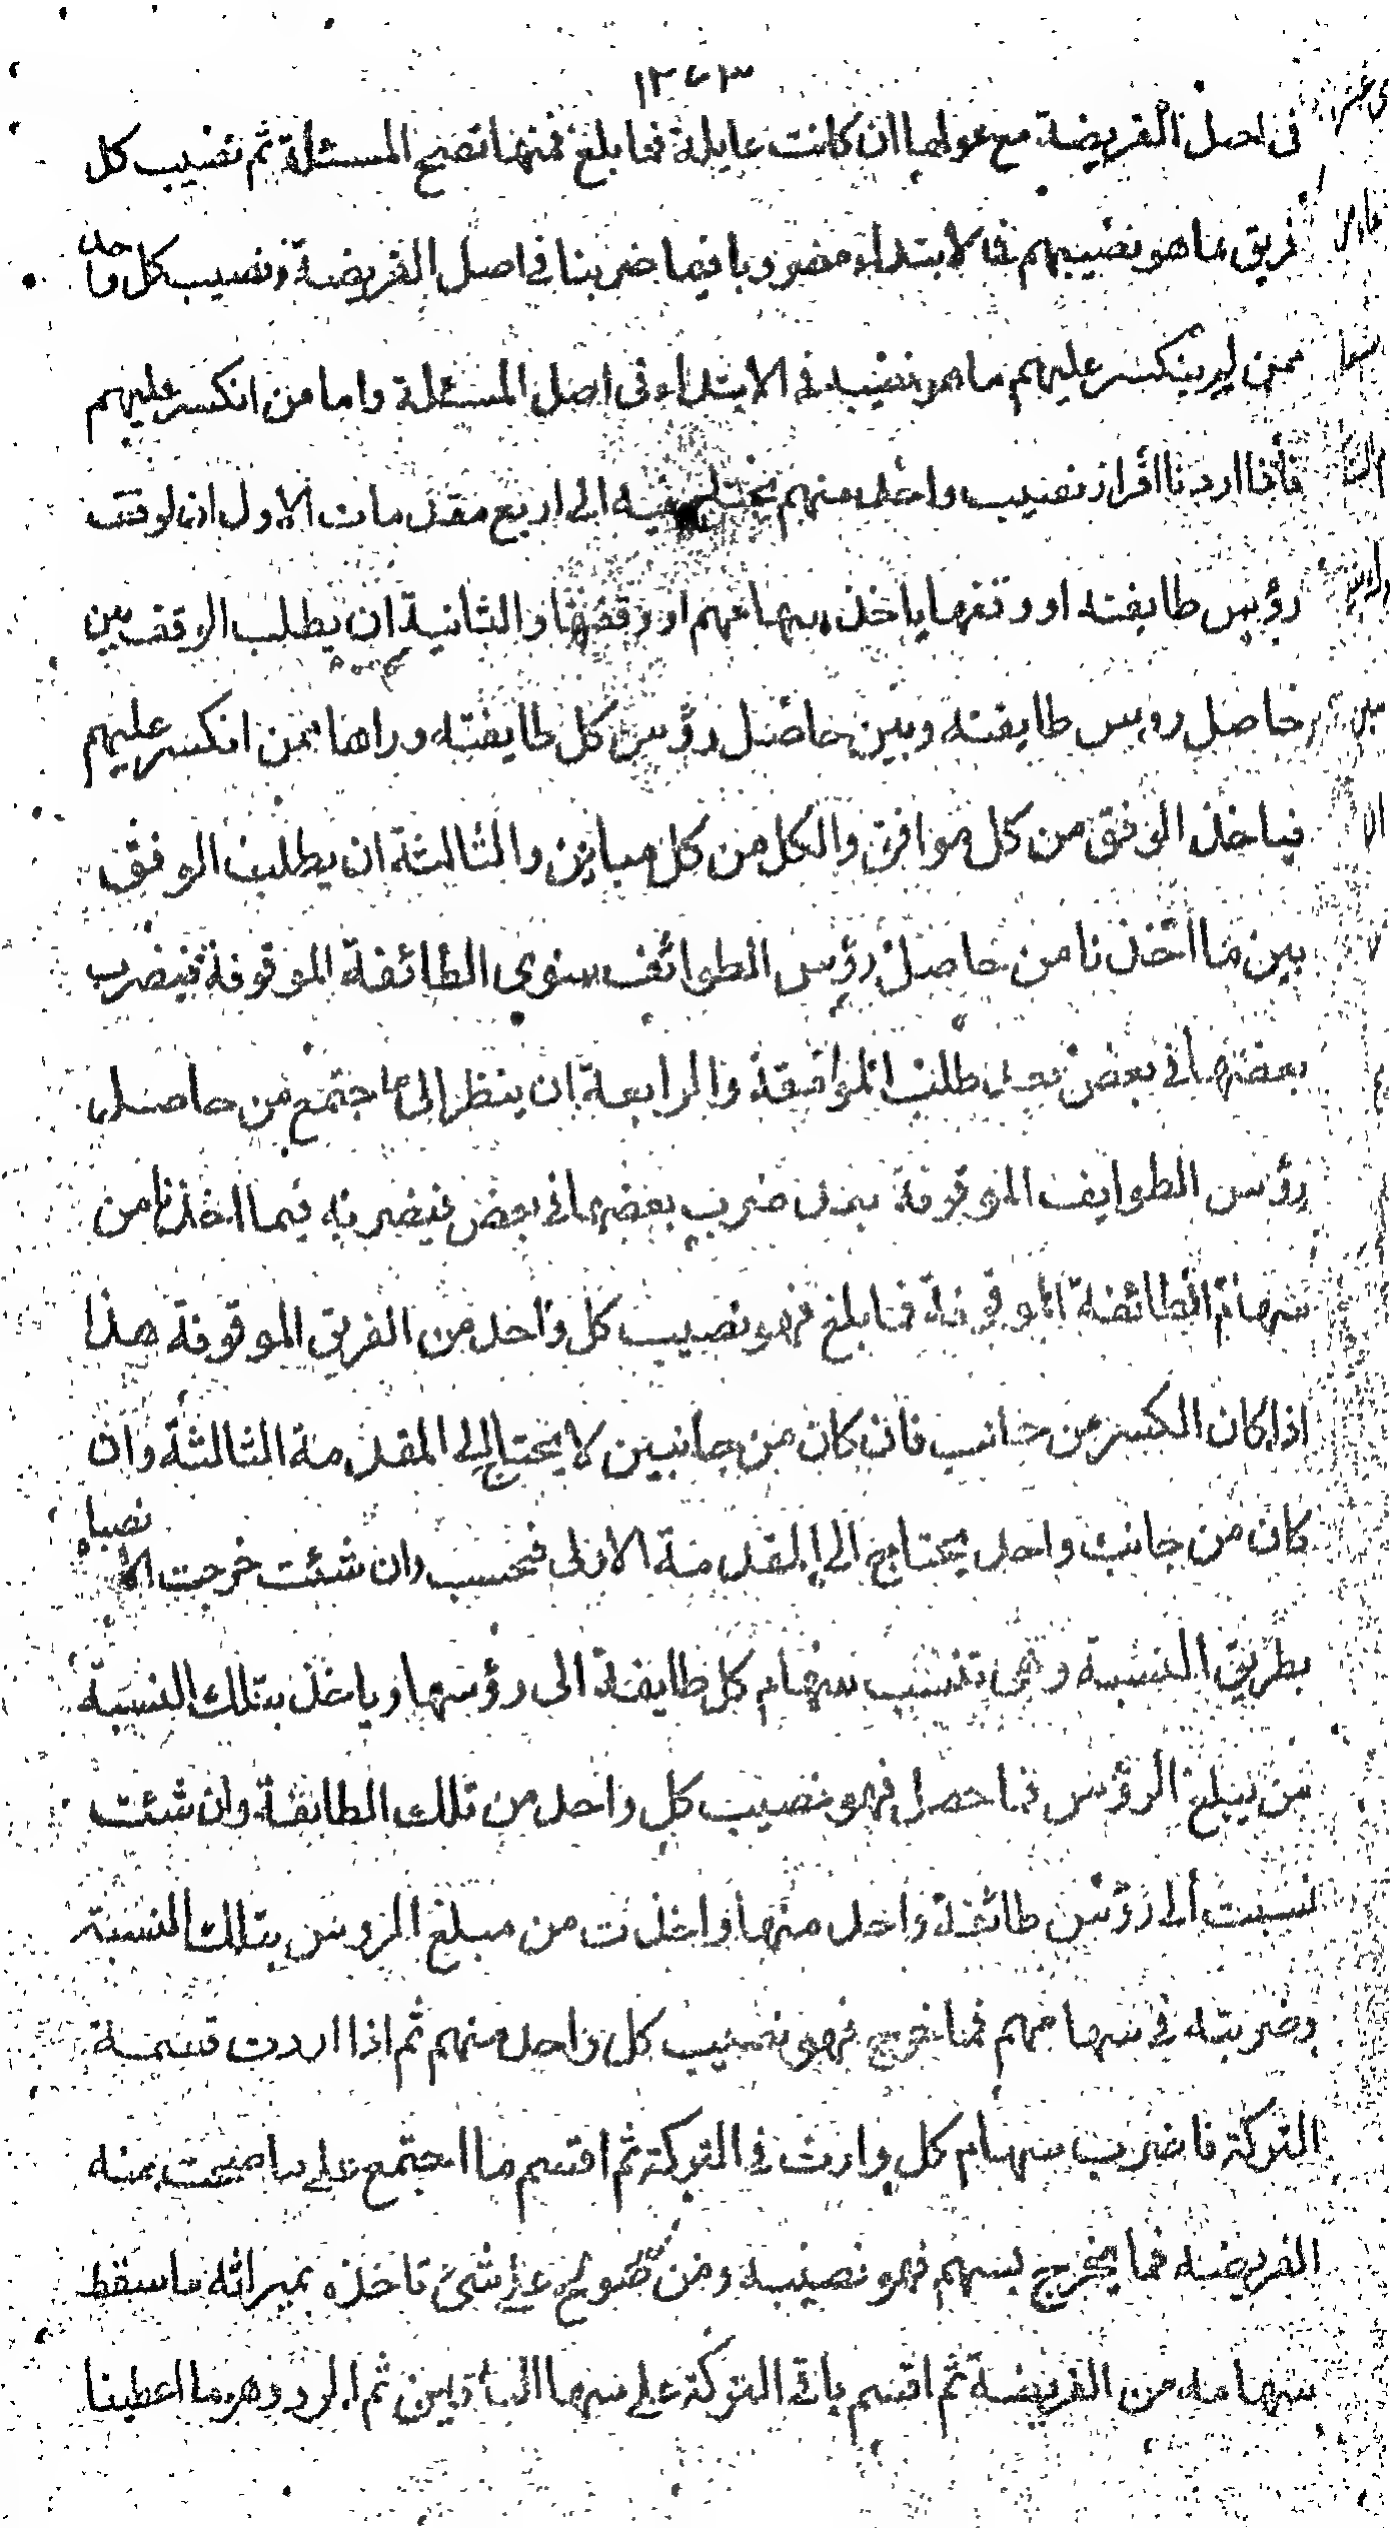 ١٢٧٣
فى اصل الفريضة مع عولها ان كانت عايلة فما بلغ فمنها تصح المسئلة ثم نصيب كل
فريق ما هو نصيبهم فى الابتداء مضروبا فيما ضربنا فى اصل الفريضة ونصيب كل واحد
ممن لم ينكسر عليهم ما هو نصيبه فى الابتداء فى اصل المسئلة واما من انكسر عليهم
فاذا اردنا افراز نصيب واحد منهم يحتاج فيه الى اربع مقدمات الاول ان لوقف
رؤس طايفته او وقفها ياخذ سهامهم او وقفها والثانية ان يطلب الوفق بين
حاصل روس طايفته وبين حاصل رؤس كل طايفته وراها ممن انكسر عليهم
فياخذ الوفق من كل موافق والكل من كل مباين والثالثة ان يطلب الوفق
بين ما اخذنا من حاصل رؤس الطوائف سوى الطائفة الموقوفة فيضرب
بعضها فى بعض بعد طلب الموافقة والرابعة ان ينظر الى ما اجتمع من حاصل
رؤس الطوايف الموقوفة بعد ضرب بعضها فى بعض فيضربه فيما اخذنا من
سهام الطائفة الموقوفة فما بلغ فهو نصيب كل واحد من الفريق الموقوفة هذا
اذا كان الكسر من جانب فان كان من جانبين لا يحتاج الى المقدمة الثالثة وان
كان من جانب واحد يحتاج الى المقدمة الاولى فحسب وان شئت خرجت الانصبا
بطريق النسبة وهى تنسب سهام كل طايفة الى رؤسها وياخذ بتلك النسبة
من مبلغ الرؤس فما حصل فهو نصيب كل واحد من تلك الطائفة وان شئت
نسبت الى رؤس طائفة واحد منها واخذت من مبلغ الروس بتلك النسبة
وضربته فى سهامهم فما خرج فهو نصيب كل واحد منهم ثم اذا اردت قسمة
التركة فاضرب سهام كل وارث فى التركة ثم اقسم ما اجتمع على ما صحت منه
الفريضة فما يخرج بسهم فهو نصيبه ومن صولح على شئ تاخذه بميراثه فاسقط
سهامه من الفريضة ثم اقسم باقى التركة على سهام الباقين ثم الرد وهو ما اعطينا